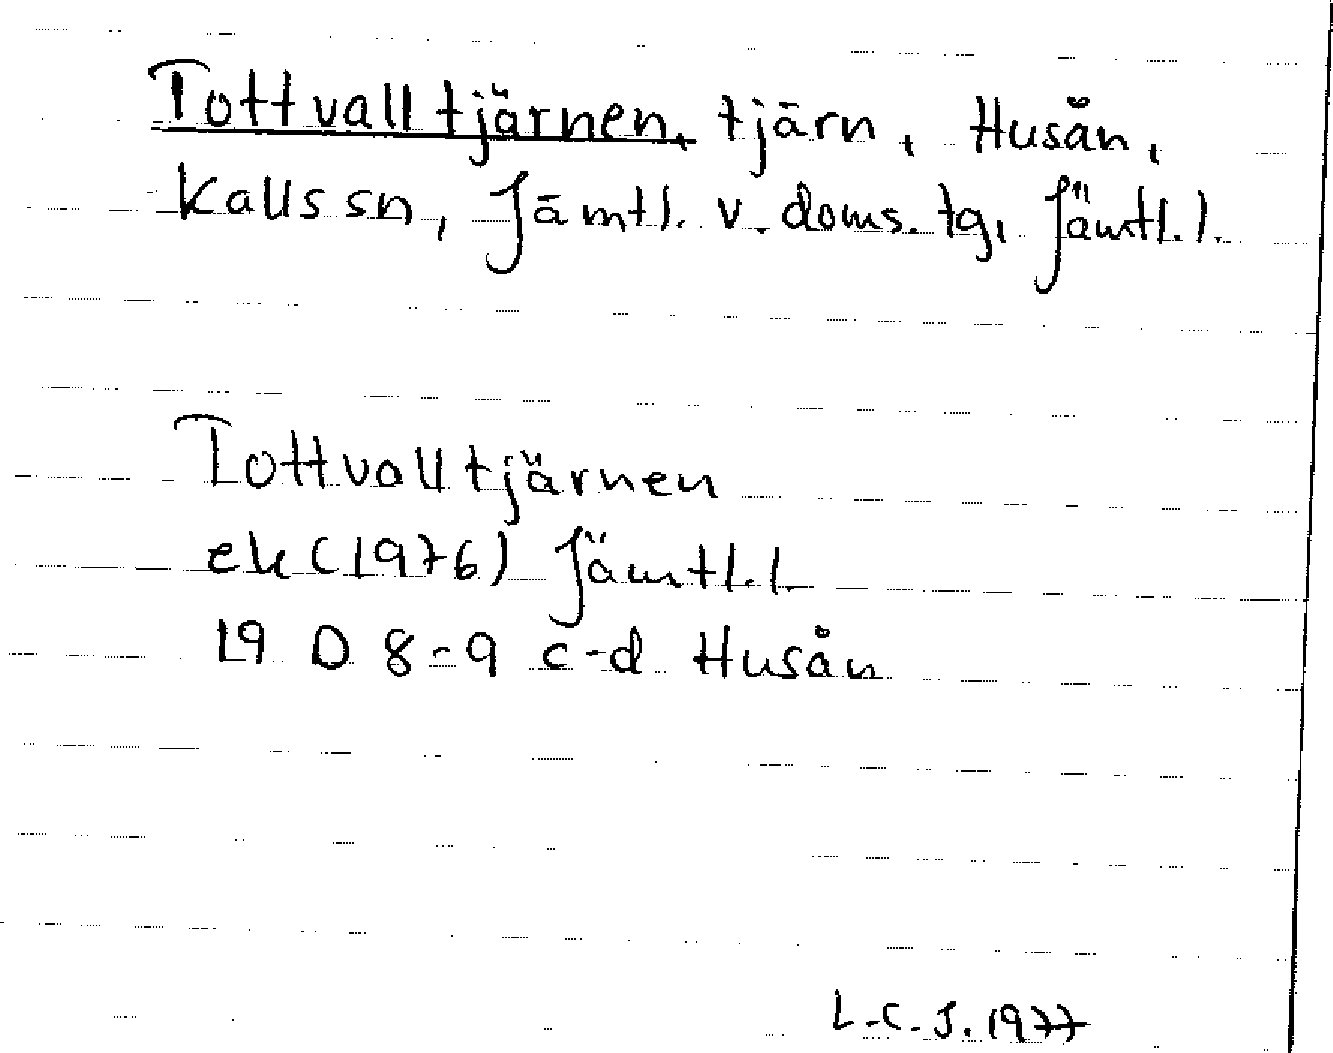 Tottvalltjärnen, tjärn, Husån,
Kalls sn, Jämtl. v. doms. tg, Jämtl. l.
Tottvalltjärnen
ek (1976) Jämtl. l.
19 D 8-9 c-d Husån
L.C.S. 1977